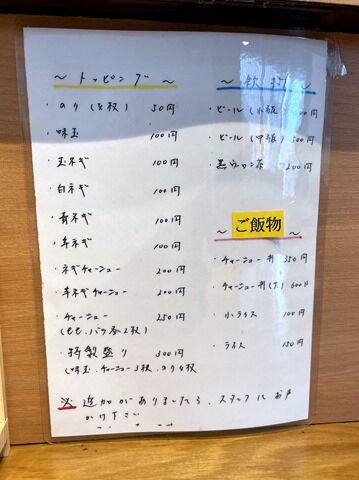 〜 トッピング 〜
・のり（5枚） 50円
・味玉 100円
・玉ネギ 100円
・白ネギ 100円
・青ネギ 100円
・辛ネギ 100円
・ネギチャーシュー 200円
・辛ネギチャーシュー 200円
・チャーシュー 250円
（もも、バラ各2枚）
・特製盛り 300円
（味玉、チャーシュー3枚、のり4枚
※ 追加がありましたら、スタッフにお声
かけ下さい
〜 飲
・ビール（小瓶
・ビール（中瓶） 500円
・黒ウーロン茶 200円
〜 ご飯物 〜
・チャーシュー丼 350円
・チャーシュー丼（大） 600円
・小ライス 100円
・ライス 150円